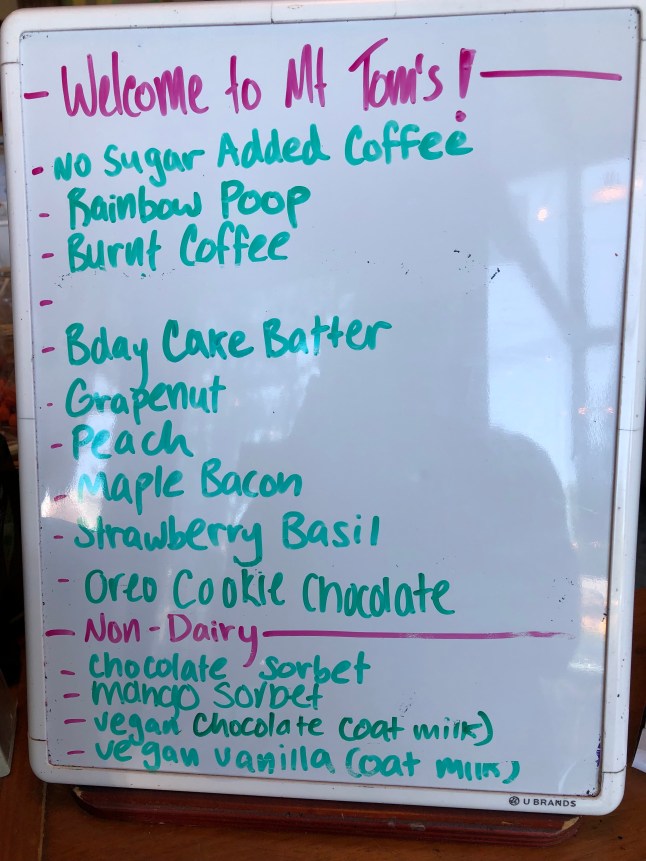 - Welcome to Mt Tom's! -
- No Sugar Added Coffee
- Rainbow Poop
- Burnt Coffee
-
- Bday Cake Batter
- Grapenut
- Peach
- Maple Bacon
- Strawberry Basil
- Oreo Cookie Chocolate
- Non-Dairy -
- chocolate sorbet
- mango sorbet
- vegan chocolate (oat milk)
- vegan vanilla (oat milk)
U BRANDS